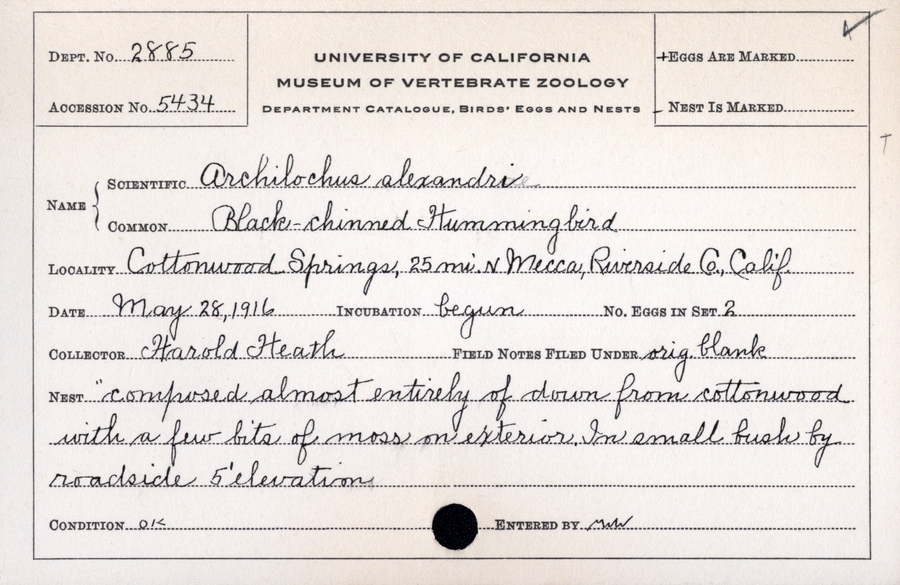 Dept. No. 2885
Accession No. 5434
UNIVERSITY OF CALIFORNIA
MUSEUM OF VERTEBRATE ZOOLOGY
Department Catalogue, Birds' Eggs and Nests
+Eggs Are Marked
- Nest Is Marked
Name { Scientific Archilochus alexandri
Common Black-chinned Hummingbird
Locality Cottonwood Springs, 25 mi. N Mecca, Riverside Co., Calif.
Date May 28, 1916 Incubation begun No. Eggs in Set 2
Collector Harold Heath Field Notes Filed Under orig. blank
Nest "composed almost entirely of down from cottonwood
with a few bits of moss on exterior. In small bush by
roadside 5' elevation
Condition OK Entered by